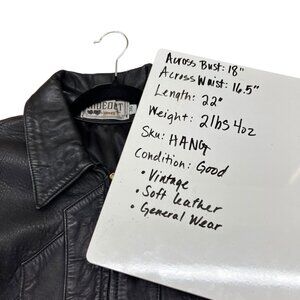 HIDEOUT
Across Bust: 18"
Across Waist: 16.5"
Length: 22"
Weight: 2lbs 4oz
Sku: HANG
Condition: Good
• Vintage
• Soft leather
• General Wear